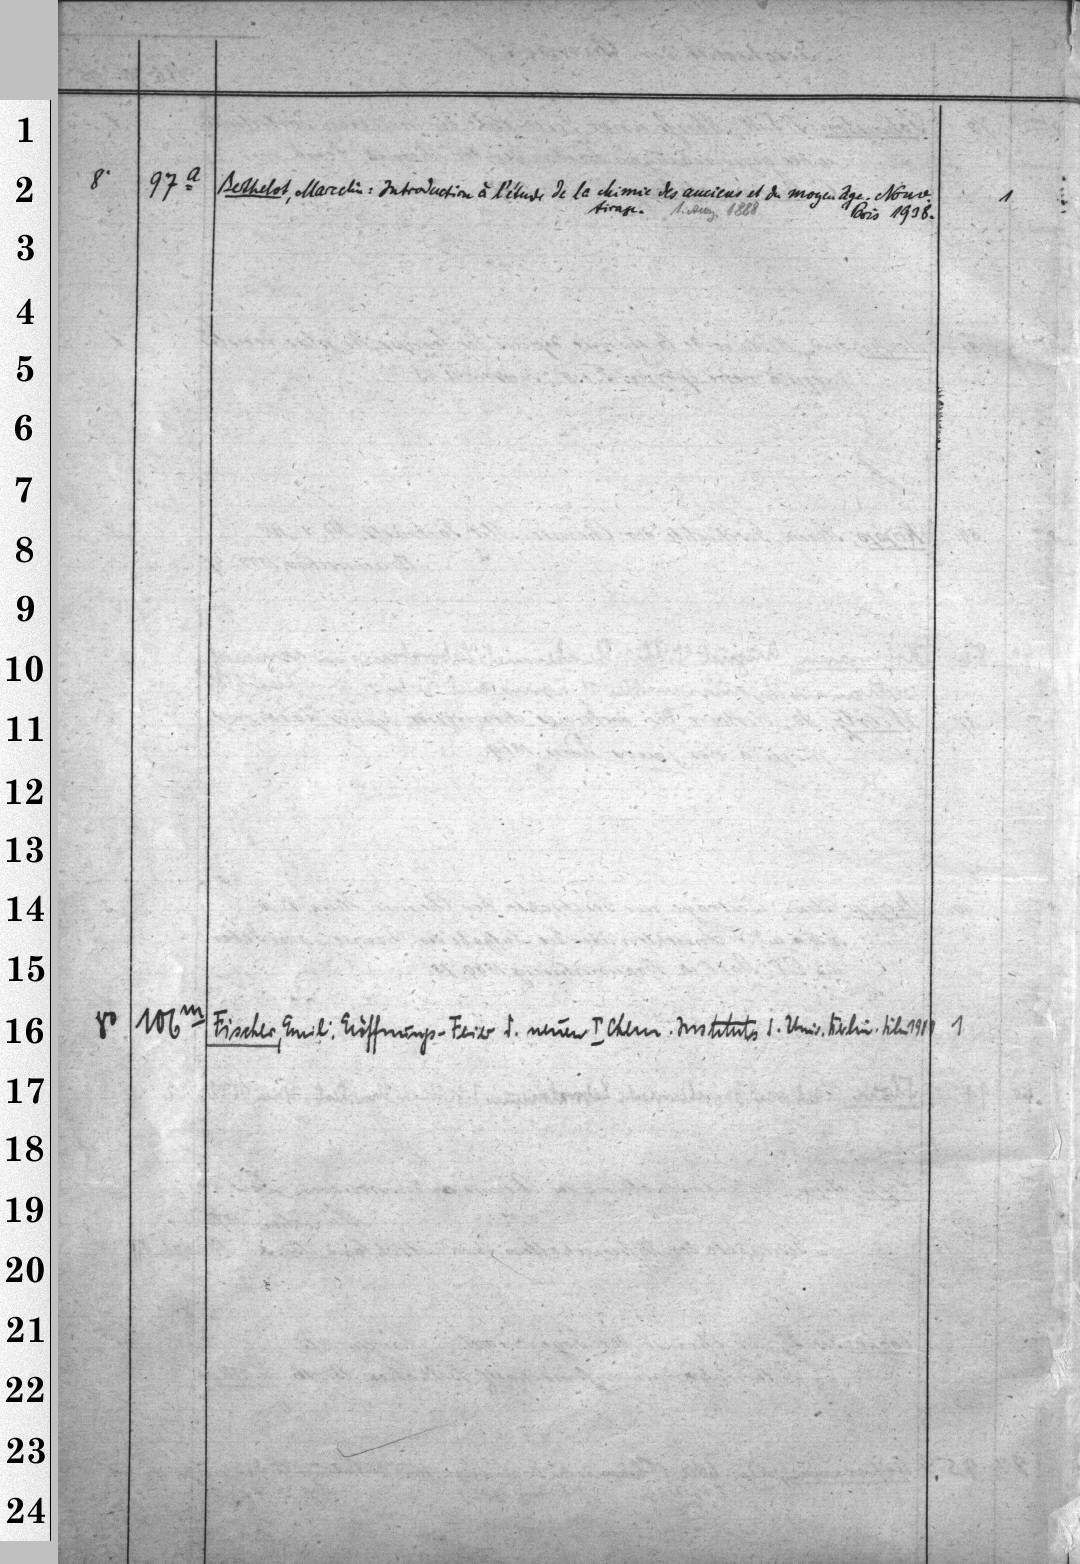 1
2
8° 97 a Berthelot, Marcelin: Introduction à l'étude de la chimie des anciens et du moyen âge. Nouv. 1
tirage. 1888 Paris 1938.
3
4
5
6
7
8
9
10
11
12
13
14
15
16
8° 106 m Fischer, Emil: Eröffnungs-Feier d. neuen I Chem. Instituts d. Univ. Berlin. 1
17
18
19
20
21
22
23
24